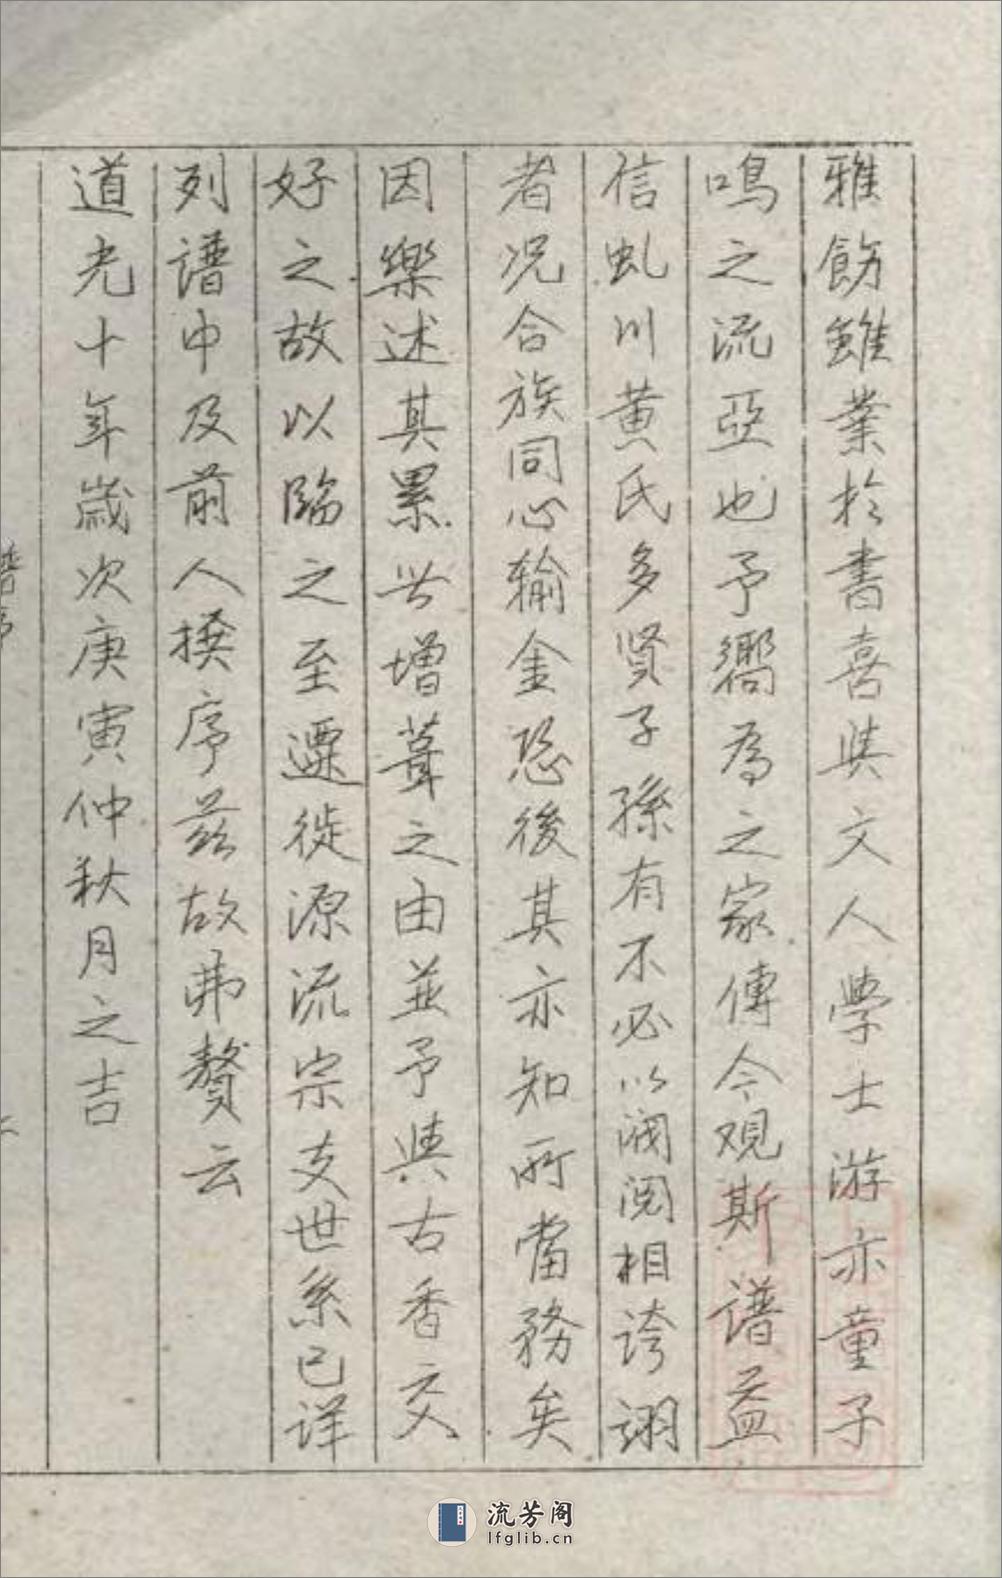 雅飭雖業於書喜與文人學士游亦童子
鳴之流亞也予嚮為之家傳今观斯谱益
信虬川黄氏多贤子孫有不必以阀阅相誇诩
者况合族同心输金恐後其亦知所當務矣
因樂述其累世增葺之由並予與古香交
好之故以臨之至遷徙源流宗支世系已详
列谱中及前人撰序兹故弗贅云
道光十年歲次庚寅仲秋月之吉
譜序
流芳阁
lfglib.cn